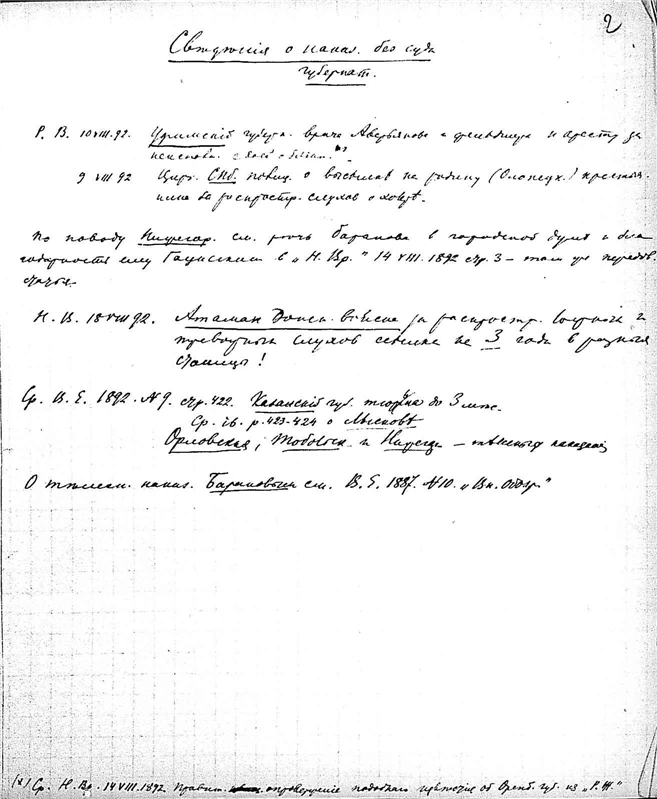 2
Свѣдѣнія о наказ. без суда
губернат.
Р. В. 10 VIII. 92. Уфимскій губерн. врача Аверьянова и фельдшера к аресту за
9 VIII 92 Цирк. СПб. полиц. о высылке на родину (Олонецк.) крестья-
нина за распростр. слухов о холерѣ.
По поводу Нижегор. см. речь Баранова в городской думѣ и бла-
годарность ему Гацисского в „Н. Вр." 14 VIII. 1892 стр. 3 – там же передов.
статья.
Н. В. 18 VIII 92. Атаман Донск. войска за распростр. ложных и
превратных слухов ссылка на 3 года в разныя
станицы!
Ср. В. Е. 1892. № 9. стр. 422. Казанскій губ. тюрьма до 3 мѣс.
Ср. ib. p. 423-424 о Лысковѣ
Орловская, Тобольск и Нижегор. – тѣлесныя наказанія
О тѣлесн. наказ. Барановым см. В. Е. 1887. № 10. „Вн. Обозр."
(x) Ср. Н. Вр. 14 VIII. 1892. Правит. опроверженіе подобнаго извѣстія об Оренб. губ. из „Р. Ж."